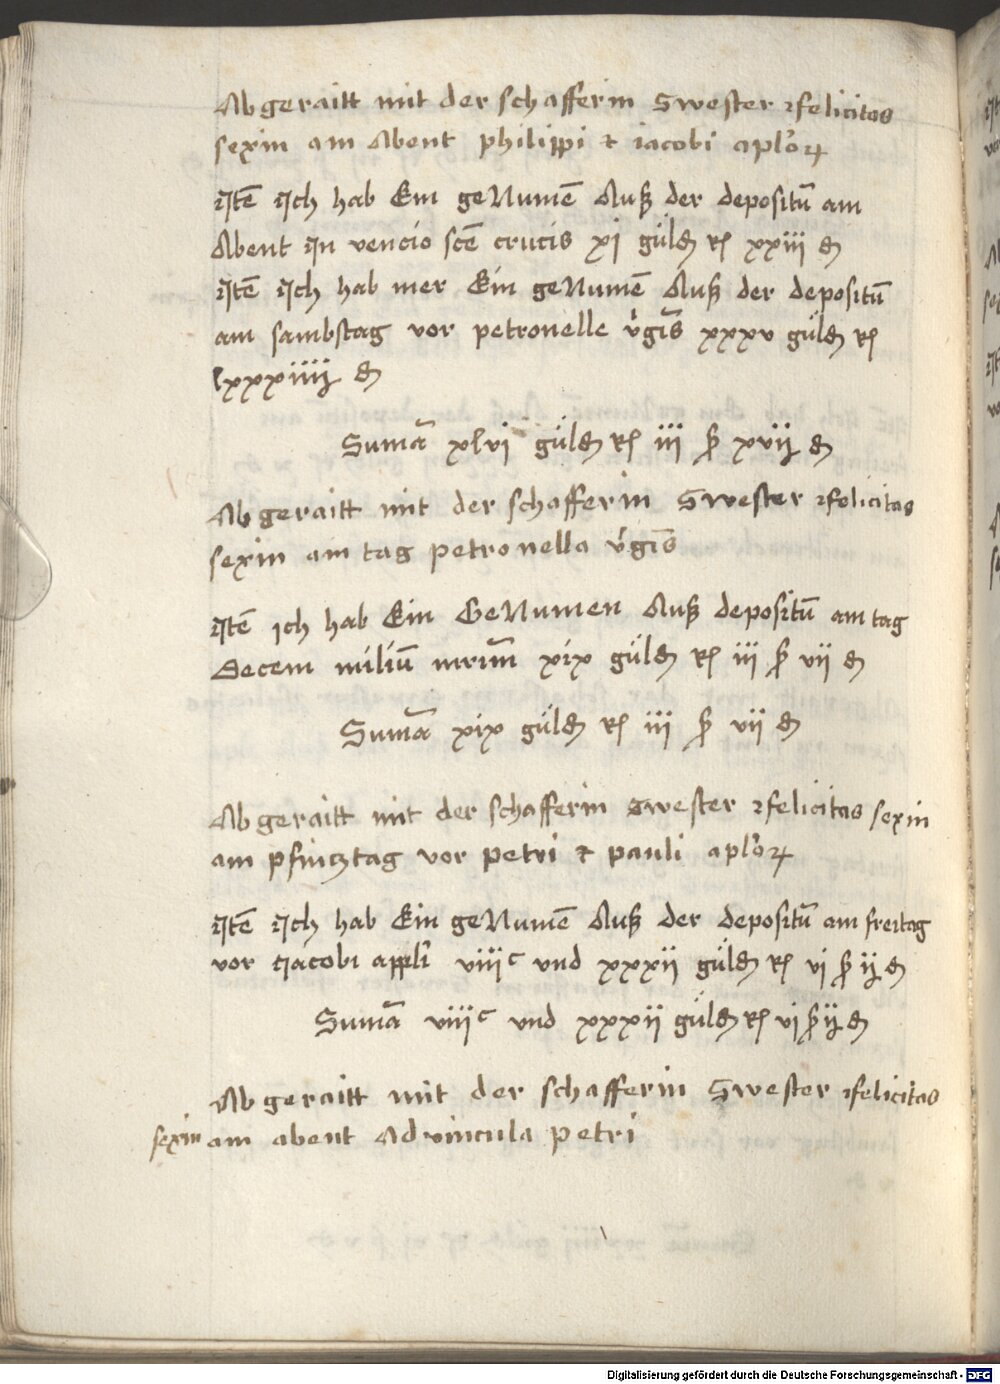 Abgeraitt mit der schafferin Swester felicitas
sexin am Abent philippi et iacobi aplor
Jtē Jch hab Ein geNumē Auß der depositū am
Abent Jn vencio scē crucis xj güldn rh xxiii dn
Jtē Jch hab mer Ein geNumē Auß der depositū
am sambstag vor petronelle v'gīs xxxv güldn rh
lxxxiiij dn
Sumā xlvi güldn rh iii ß xvij dn
Abgeraitt mit der schafferin Swester felicitas
sexin am tag petronella v'gīs
Jtē ich hab Ein GeNumen Auß depositū am tag
Decem miliū mrim̄ xix güldn rh iii ß vij dn
Sumā xix güldn rh iii ß vij dn
Abgeraitt mit der schafferin Swester felicitas sexin
am pfincztag vor petri et pauli aplor
Jtē Jch hab Ein geNumē Auß der depositū am freitag
vor Jacobi appli viiiᶜ vnd xxxij güldn rh vj ß ij dn
Sumā viiiᶜ vnd xxxij güldn rh vj ß ij dn
Abgeraitt mit der schafferin Swester felicitas
sexin am abent Advincula petri
Digitalisierung gefördert durch die Deutsche Forschungsgemeinschaft - DFG